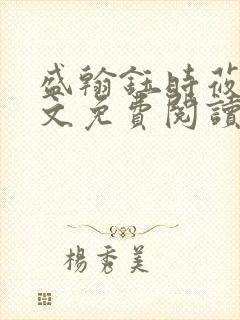 盛翰鈺時莜
文免費閱讀
楊秀美